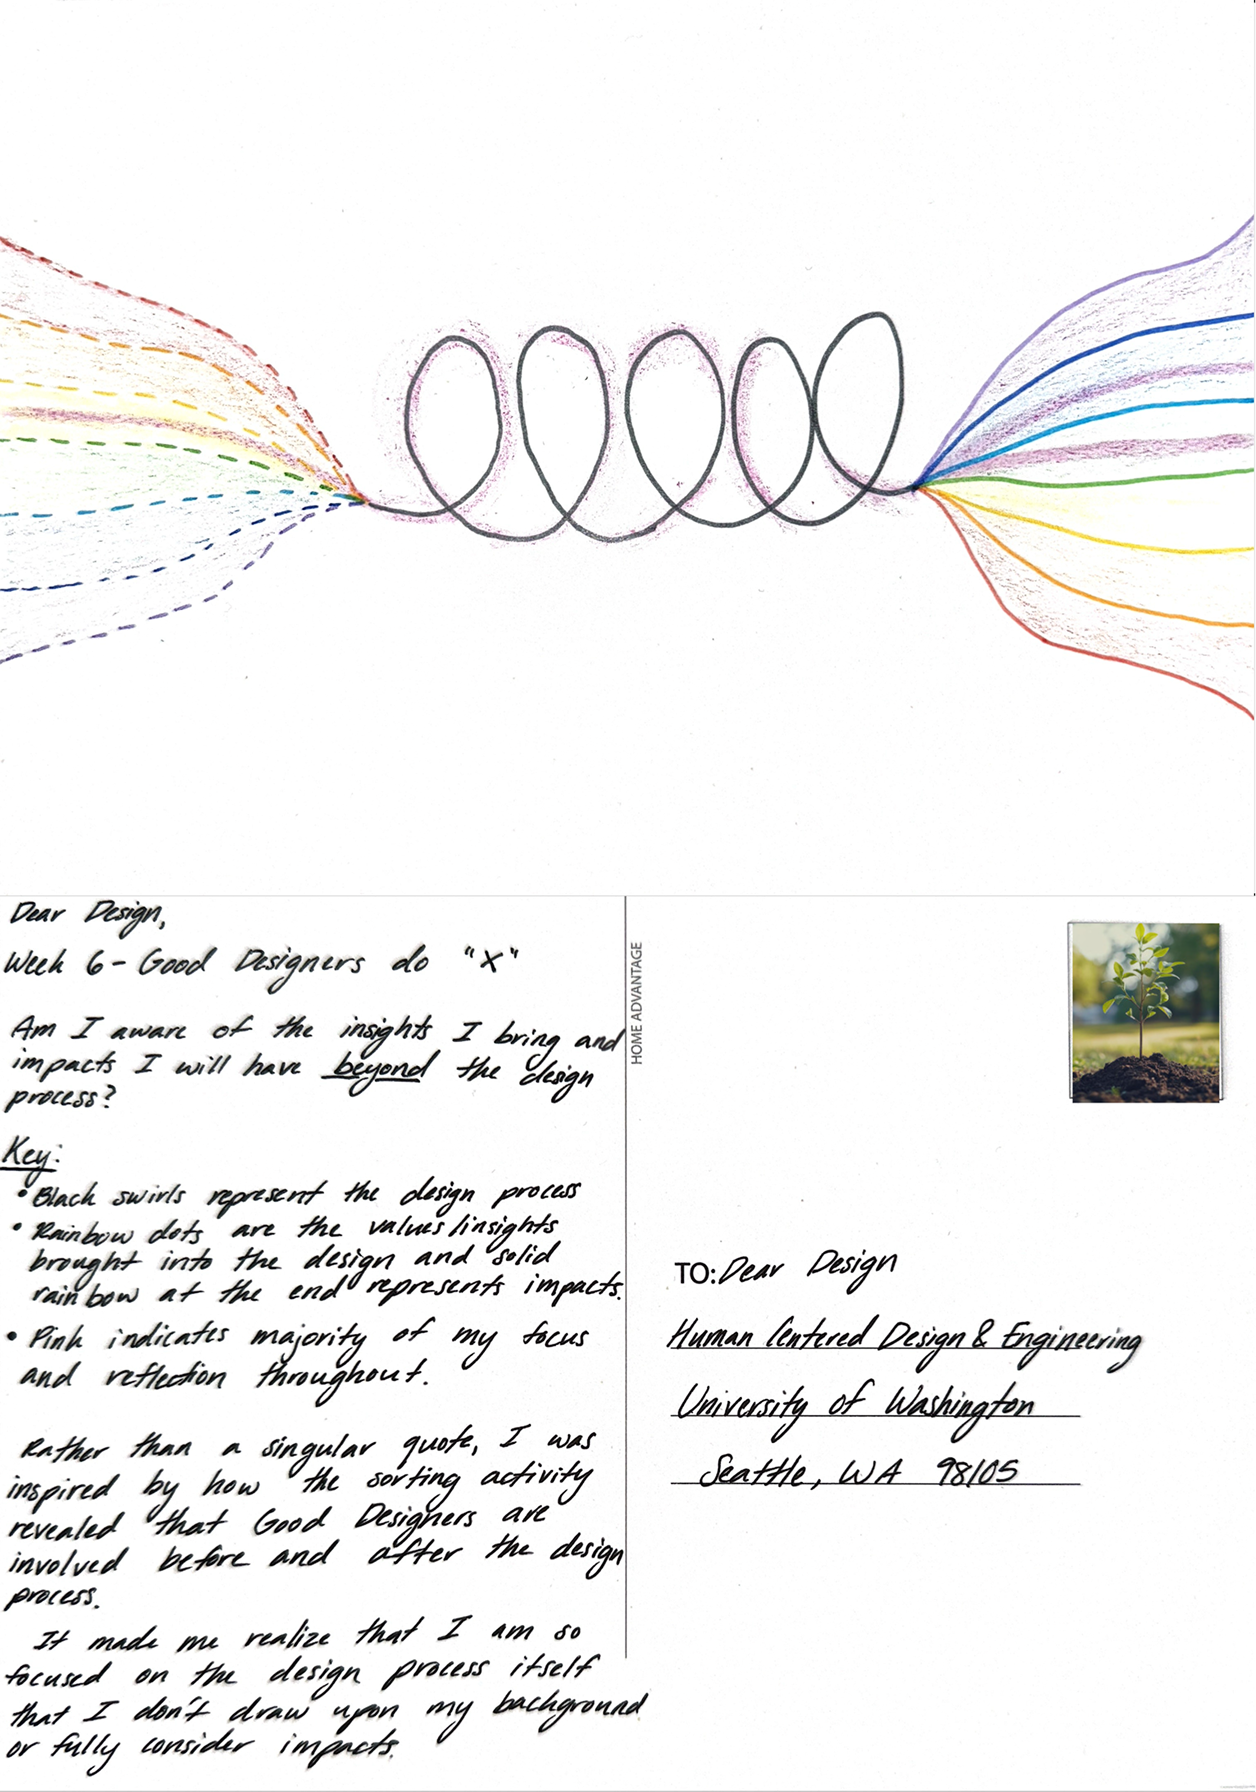 Dear Design,
Week 6 - Good Designers do "X"
Am I aware of the insights I bring and
impacts I will have beyond the design
process?
Key:
• Black swirls represent the design process
• Rainbow dots are the values/insights
brought into the design and solid
rainbow at the end represents impacts.
• Pink indicates majority of my focus
and reflection throughout.
Rather than a singular quote, I was
inspired by how the sorting activity
revealed that Good Designers are
involved before and after the design
process.
It made me realize that I am so
focused on the design process itself
that I don't draw upon my background
or fully consider impacts.
HOME ADVANTAGE
TO: Dear Design
Human Centered Design & Engineering
University of Washington
Seattle, WA 98105